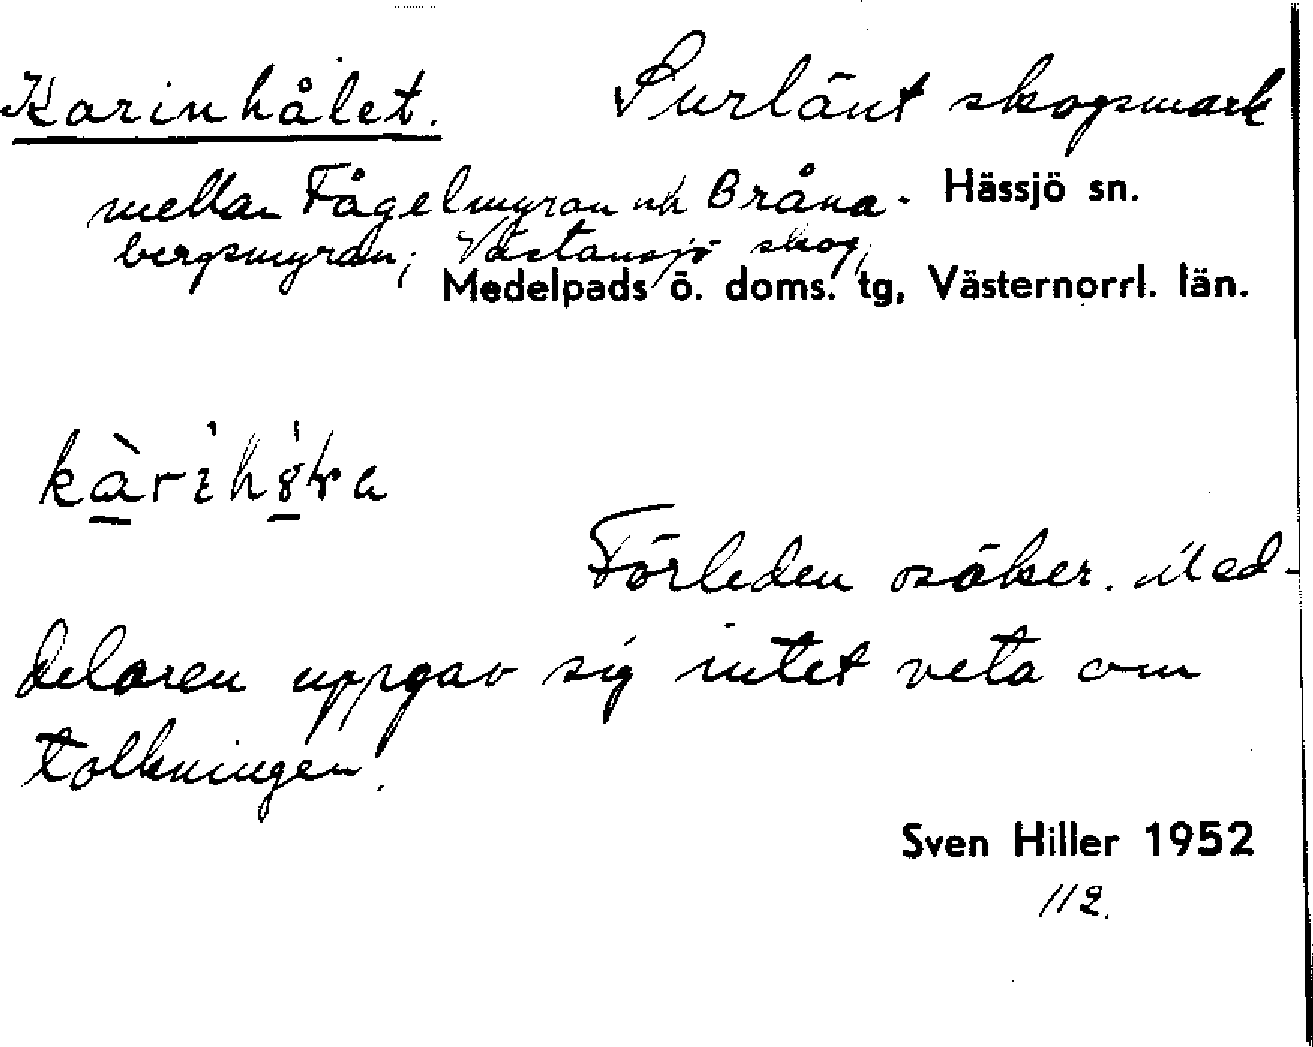 Karinhålet. Surlänt skogsmark
mellan Fågelmyran och Bråna-
Hässjö sn.
bergsmyran; Västansjö skog,
Medelpads ö. doms. tg, Västernorrl. län.
Förleden osäker. Med-
delaren uppgav sig intet veta om
tolkningen.
Sven Hiller 1952
112.